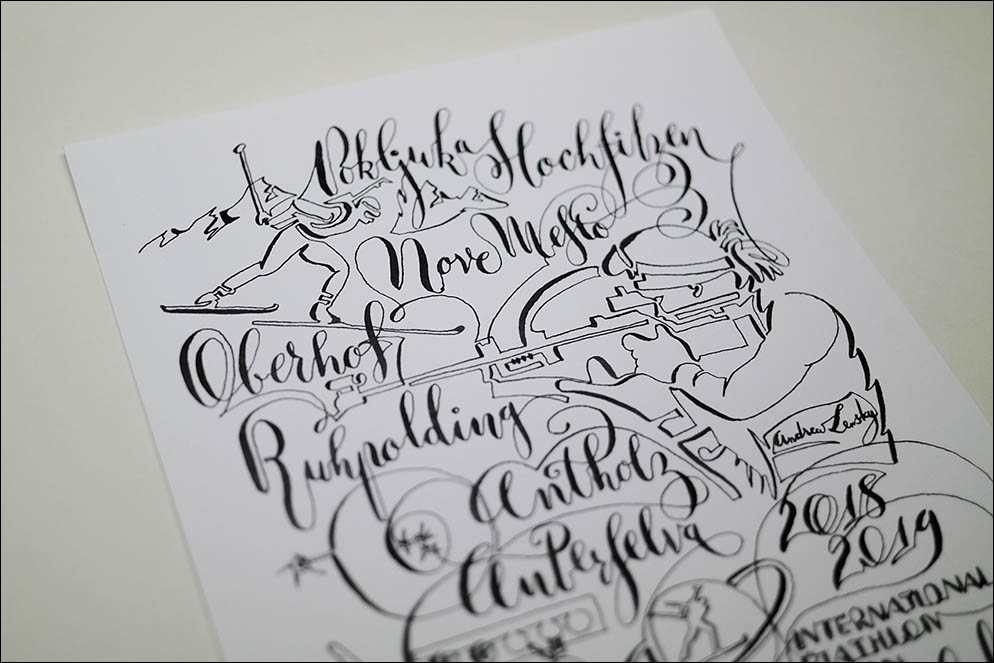 Pokljuka Hochfilzen
Nove Mesto
Oberhof
Ruhpolding
Andrew Lensky
Antholz
Anterselva
2018
2019
INTERNATIONAL
BIATHLON